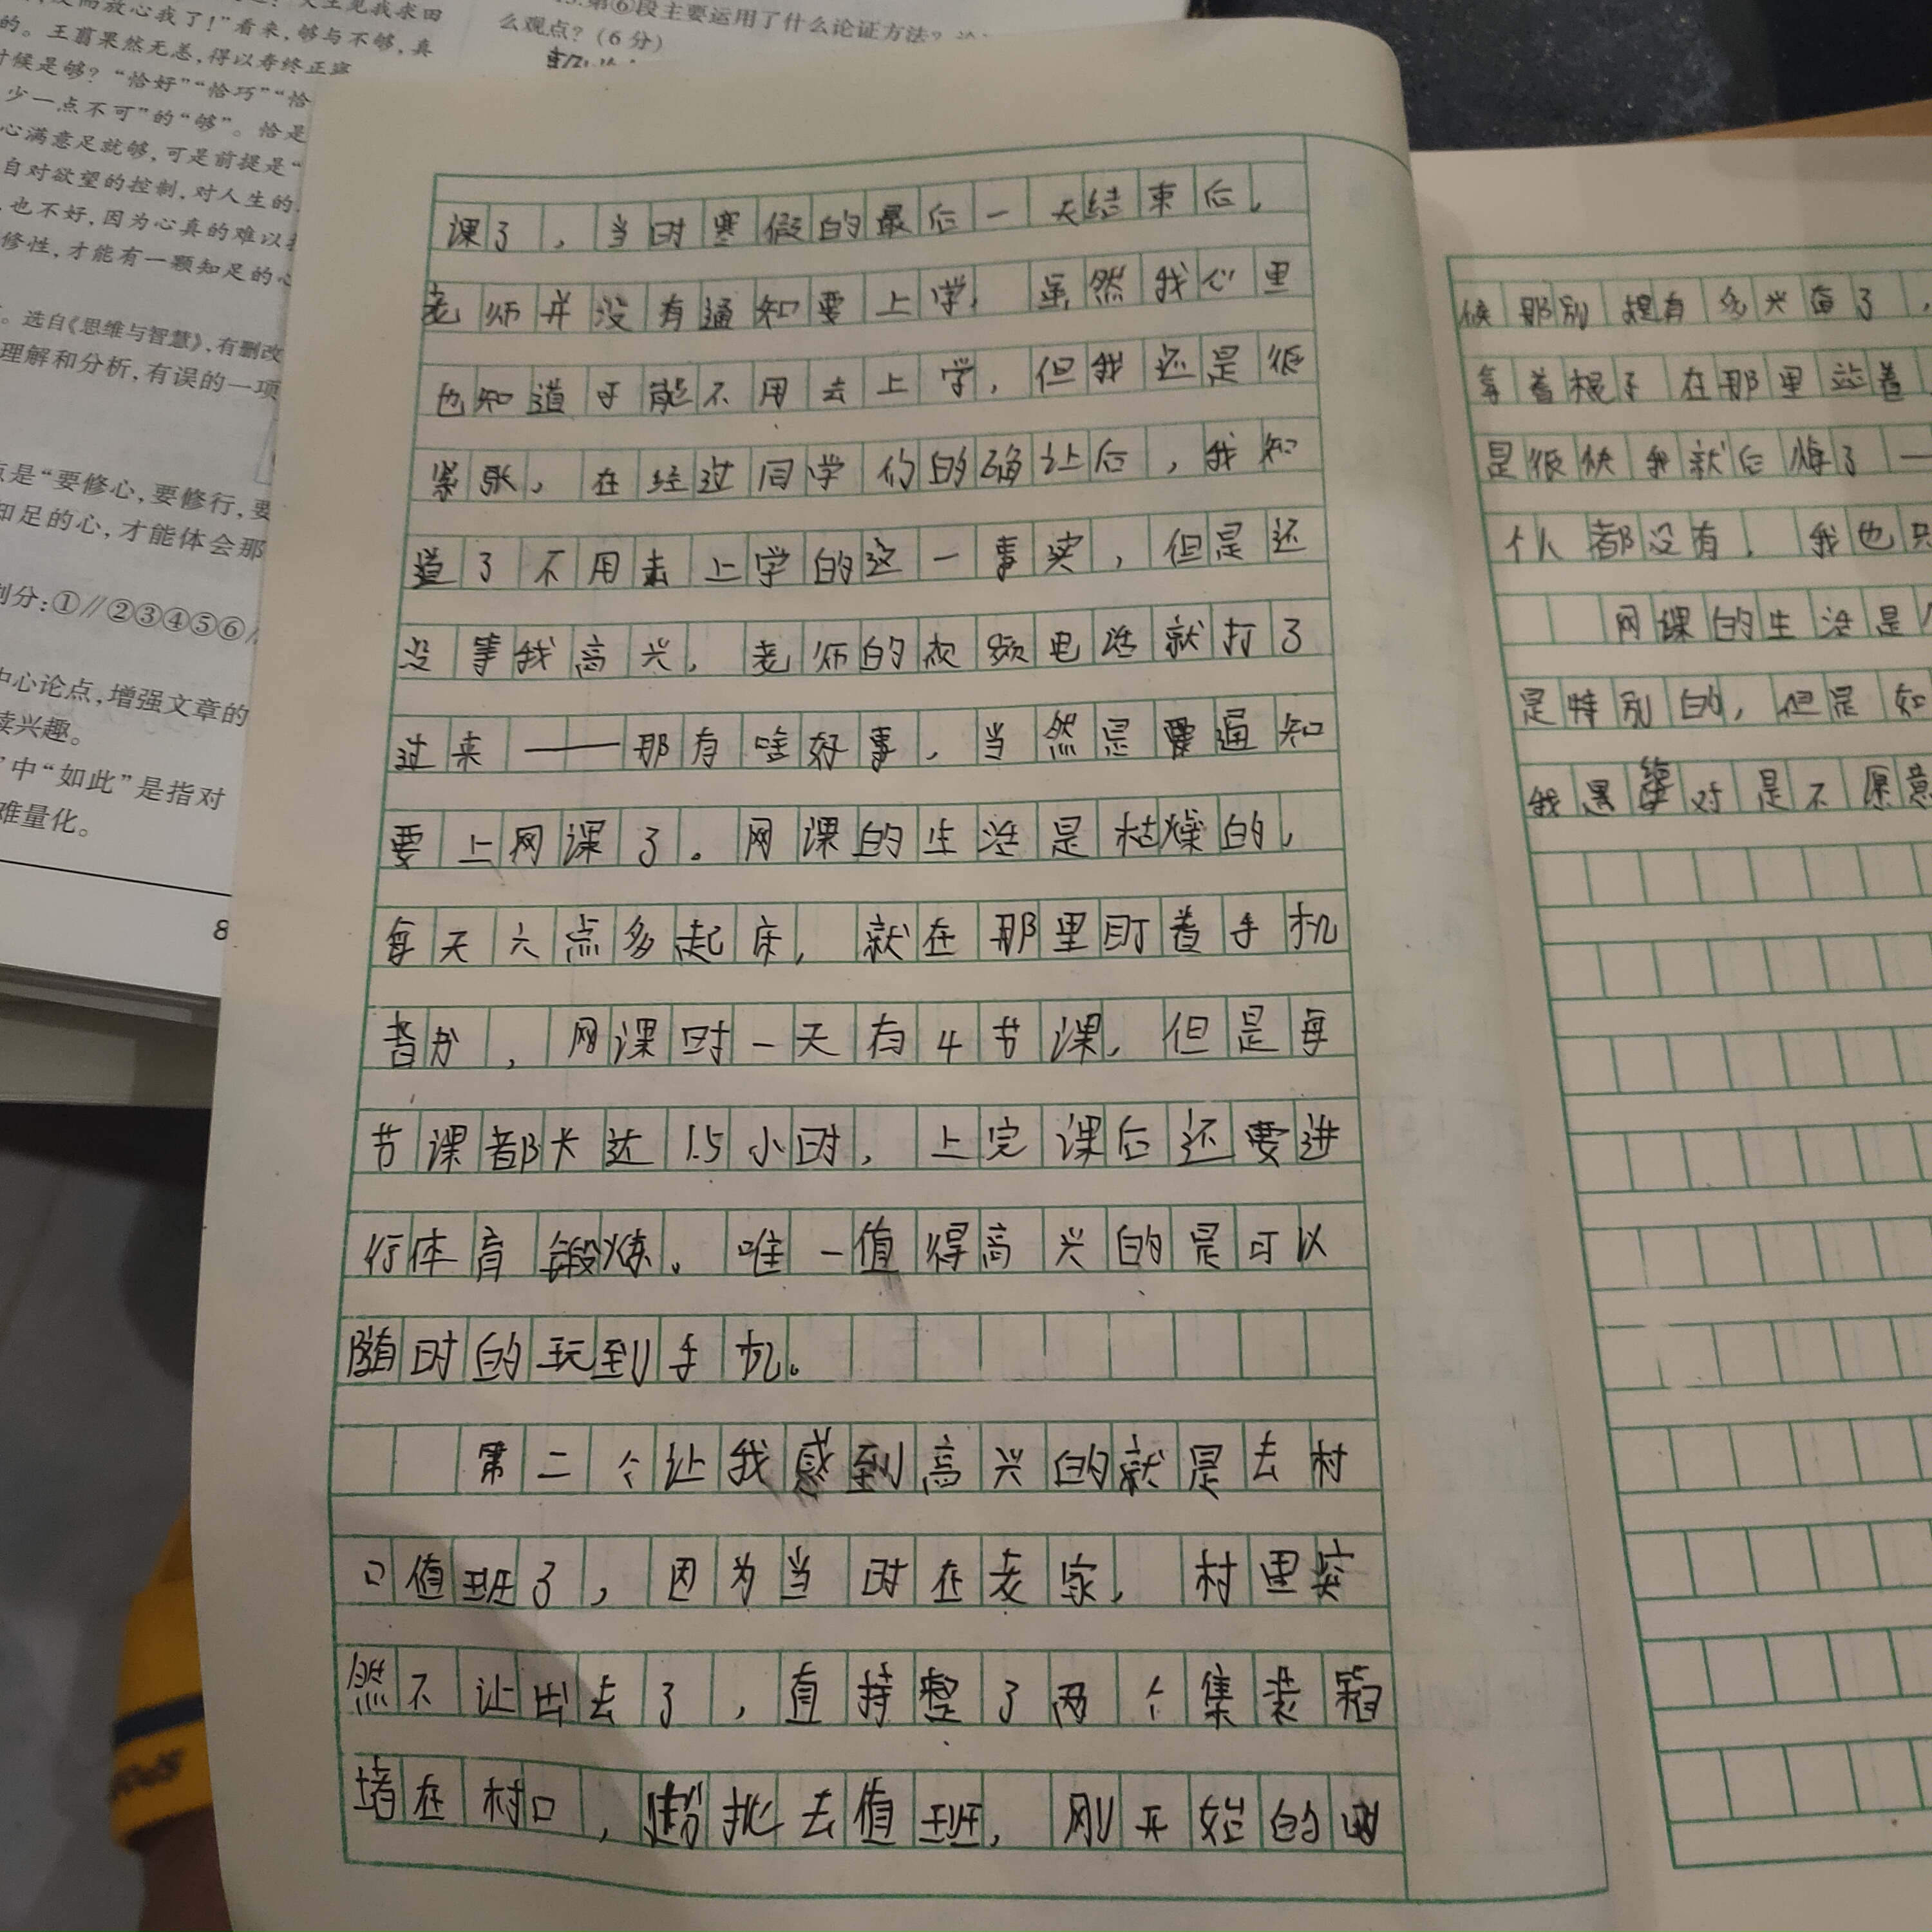 的。王翦果然无恙，得以寿终正寝
时候是够？“恰好”“恰巧”“恰
少一点不可”的“够”。恰是
心满意足就够，可是前提是“
自对欲望的控制，对人生的
，也不好，因为心真的难以
修性，才能有一颗知足的心
。选自《思维与智慧》，有删改
理解和分析，有误的一项
点是“要修心，要修行，要
知足的心，才能体会那
划分：①∥②③④⑤⑥
中心论点，增强文章的
读兴趣。
”中“如此”是指对
难量化。
8
第⑥段主要运用了什么论证方法？
么观点？（6分）
课了，当时寒假的最后一天结束后，
老师并没有通知要上学，虽然我心里
也知道可能不用去上学，但我还是很
紧张，在经过同学们的确认后，我知
道了不用去上学的这一事实，但是还
没等我高兴，老师的视频电话就打了
过来——那有啥好事，当然是要通知
要上网课了。网课的生活是枯燥的，
每天六点多起床，就在那里盯着手机
背书，网课时一天有4节课，但是每
节课都长达1.5小时，上完课后还要进
行体育锻炼。唯一值得高兴的是可以
随时的玩到手机。
第二个让我感到高兴的就是去村
口值班了，因为当时在老家，村里突
然不让出去了，直接整了两个集装箱
堵在村口，批去值班，刚开始的时
候那别提有多兴奋了，
拿着棍子在那里站着
是很快我就后悔了一
个人都没有，我也只
网课的生活是
是特别的，但是如
我是绝对是不愿意